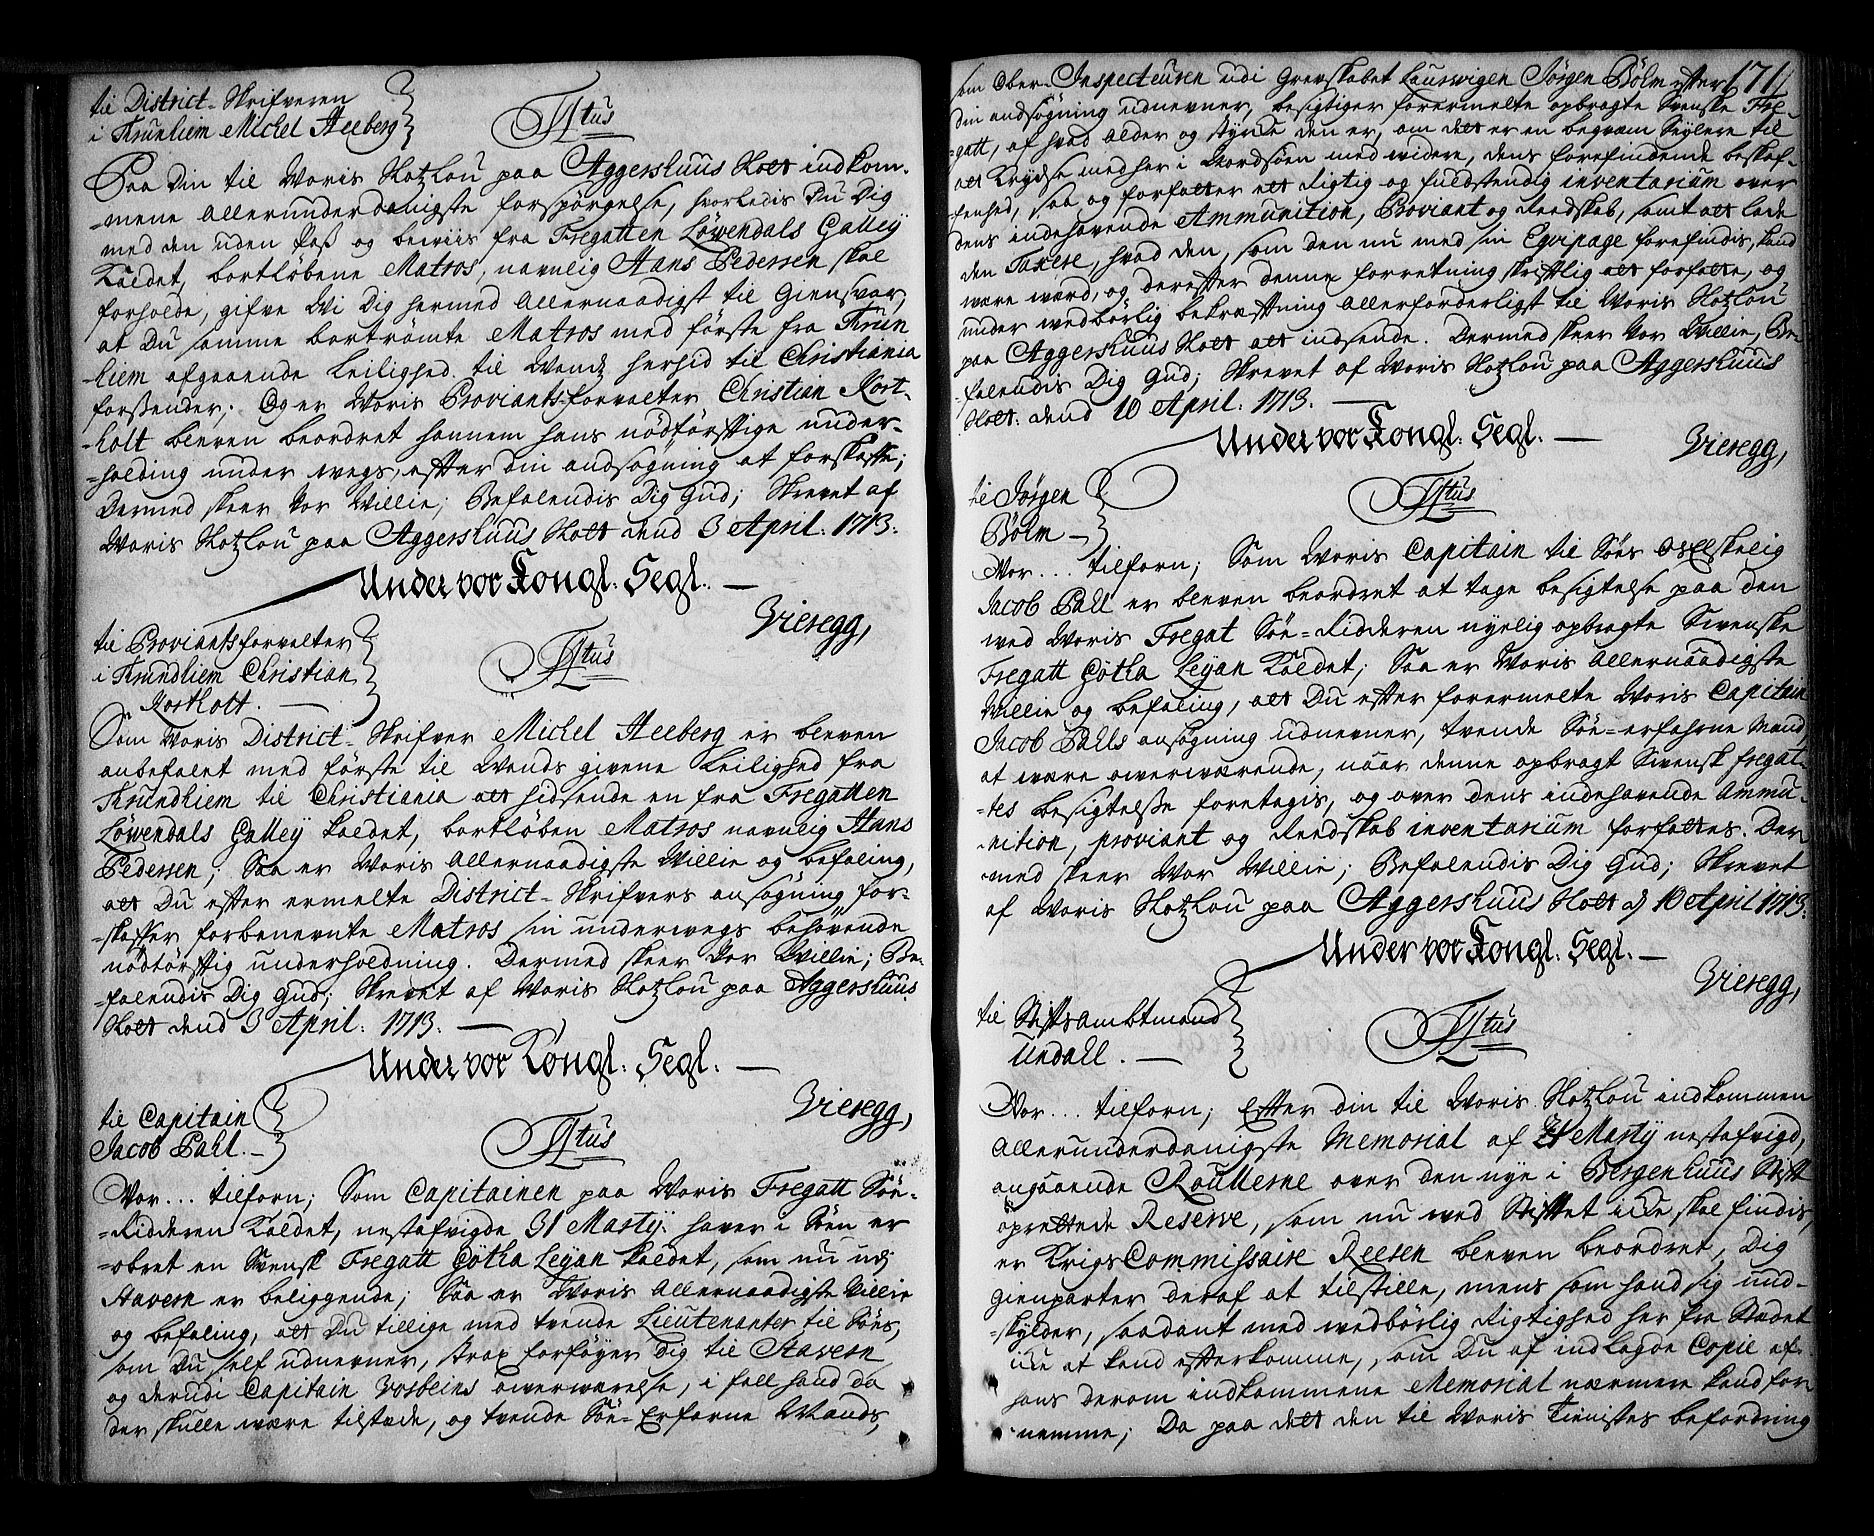 til District-Skrifveren
i Trunhiem Michel Aeeberg
Ttus
Paa Din til Woris Slotzlou paa Aggershuus Slott indkom-
-mene allerunderdanigste forspörgelse, hvorledis Du Dig
med den uden Pass og beviis fra Fregatten Löwendals Galleÿ
kaldet, bortløbene Matros, navnlig Hans Pedersen skal
forholde, gifve Wi Dig hermed allernaadigst til Giensvar,
at Du samme bortrömte Matros med förste fra Trun
hiem afgaaende leilighed til Wandz herhid til Christiania
forsender. Og er Woris Proviantsforvalter Christian Kort-
-holt bleven beordret hannem hans nödtörftige under-
-holding under wegs, efter din ansögning at forskaffe;
Dermed skeer Vor Willie; Befalendis Dig Gud; Skrevet af
Woris Slotzlou paa Aggershuus Slott dend 3 April. 1713.
Under vor Kongl. Segl.
Vieregg,
til Proviantsforvalter
i Trundhiem Christian
Kortholt.
Ttus
Som Woris District-Skrifver Michel Aeeberg er bleven
anbefalet med förste til Wands givene leilighed fra
Trundhiem til Christiania att hidsende en fra Fregatten
Löwendals Galleÿ kaldet, bortløben Matros navnlig Hans
Pedersen; Saa er Woris allernaadigste Willie og befaling,
att Du efter ermelte District-Skrifvers ansögning for-
-skaffer forbenevnte Matros sin underwegs behövende
nödtörftig underholdning. Dermed skeer Vor Willie; Be-
-falendis Dig Gud; Skrevet af Woris Slotzlou paa Aggershuus
Slott dend 3 April. 1713.
Under vor Kongl. Segl.
Vieregg,
til Capitain
Jacob Pahl.
Ttus
Vor... tilforn; Som Capitainen paa Woris Fregatt Söe-
-Ridderen kaldet, nestafvigde 31 Martÿ. haver i Söen er
-obret en Svensk Fregatt Götha Leÿon kaldet, som nu udj
Stavern er beliggende; Saa er Woris allernaadigste Willie
og befaling, att Du tillige med tvende Lieutenanter til Söes,
som Du self udnevner, strax forföyer dig til Stavern
og derudi Capitain Vosbeins overwærelse, i fall hand da
der skulle være tilstæde, og tvende Söe-Erfarne Mænds,
som Ober-Inspecteuren udi Grevskabet Laurwigen Jörgen Bölm efter
171
din ansögning udnevner, besigtiger forermelte opbragte Svenske Fre-
-gatt, af hvad alder og styrke den er, om dett er en beqvæm Seÿlere til
att krydse med her i Nordsöen med widere, dens forefindende beskaf-
-fenhed, saa og forfatter ett Rigtig og fuldstendig inventarium over
dens indehavende Ammunition, Proviant og Reedskab, samt att lade
den Taxere, hvad den, som den nu med sin Eqvipage forefindis, kand
være værd, og derefter denne forretning skriftlig att forfatte, og
under wedbörlig bekræftning allerforderligst til Woris Slotzlou
paa Aggershuus Slott att indsende. Dermed skeer Vor Willie, Be-
falendis Dig Gud; Skrevet af Woris Slotzlou paa Aggershuus
Slott. dend 10 April. 1713.
Under vor Kongl. Segl.
Vieregg,
til Jörgen
Bölm
Ttus
Vor... tilforn; Som Woris Capitain til Söes Os Elskelig
Jacob Pahl er bleven beordret at tage besigtelse paa den
wed Woris Fregat Söe-Ridderen nyelig opbragte Swenske
Fregatt Götha Leÿon kaldet; Saa er Woris allernaadigste
Willie og befaling, att Du efter forermelte Woris Capitain
Jacob Pahls ansögning udnevner, tvende Söe-erfahrne Mænd,
at være overwærende, naar denne opbragt Swensk fregat-
-tes besigtelse foretagis, og over dens indehavende Ammu-
-nition, proviant og Reedskab inventarium forfattes. Der
med skeer Wor Willie; Befalendis Dig Gud; Skrevet
af Woris Slotzlou paa Aggershuus Slott d 10 April 1713.
Under vor Kongl. Segl.
Vieregg,
til Stiftsambtmand
Undall.
Ttus
Vor... tilforn; Efter din til Woris Slotzlou indkommen
allerunderdanigste Memorial af 21 Martÿ nestafvigd,
angaaende Roullerne over den nye i Bergenhuus Stift
oprettede Reserve, som nu wed Stiftet icke skal findis,
er Krigs Commissaire Reesen bleven beordret, Dig
gienparter deraf at tilstille, mens som hand sig und-
-skylder, saadant med wedbörlig Rigtighed her fra Stædet
icke at kand efterkomme, som Du af indlagde Copie af
hans derom indkommene Memorial nærmere kand for-
nemme; Da paa dett den til Woris Tienistes befordring